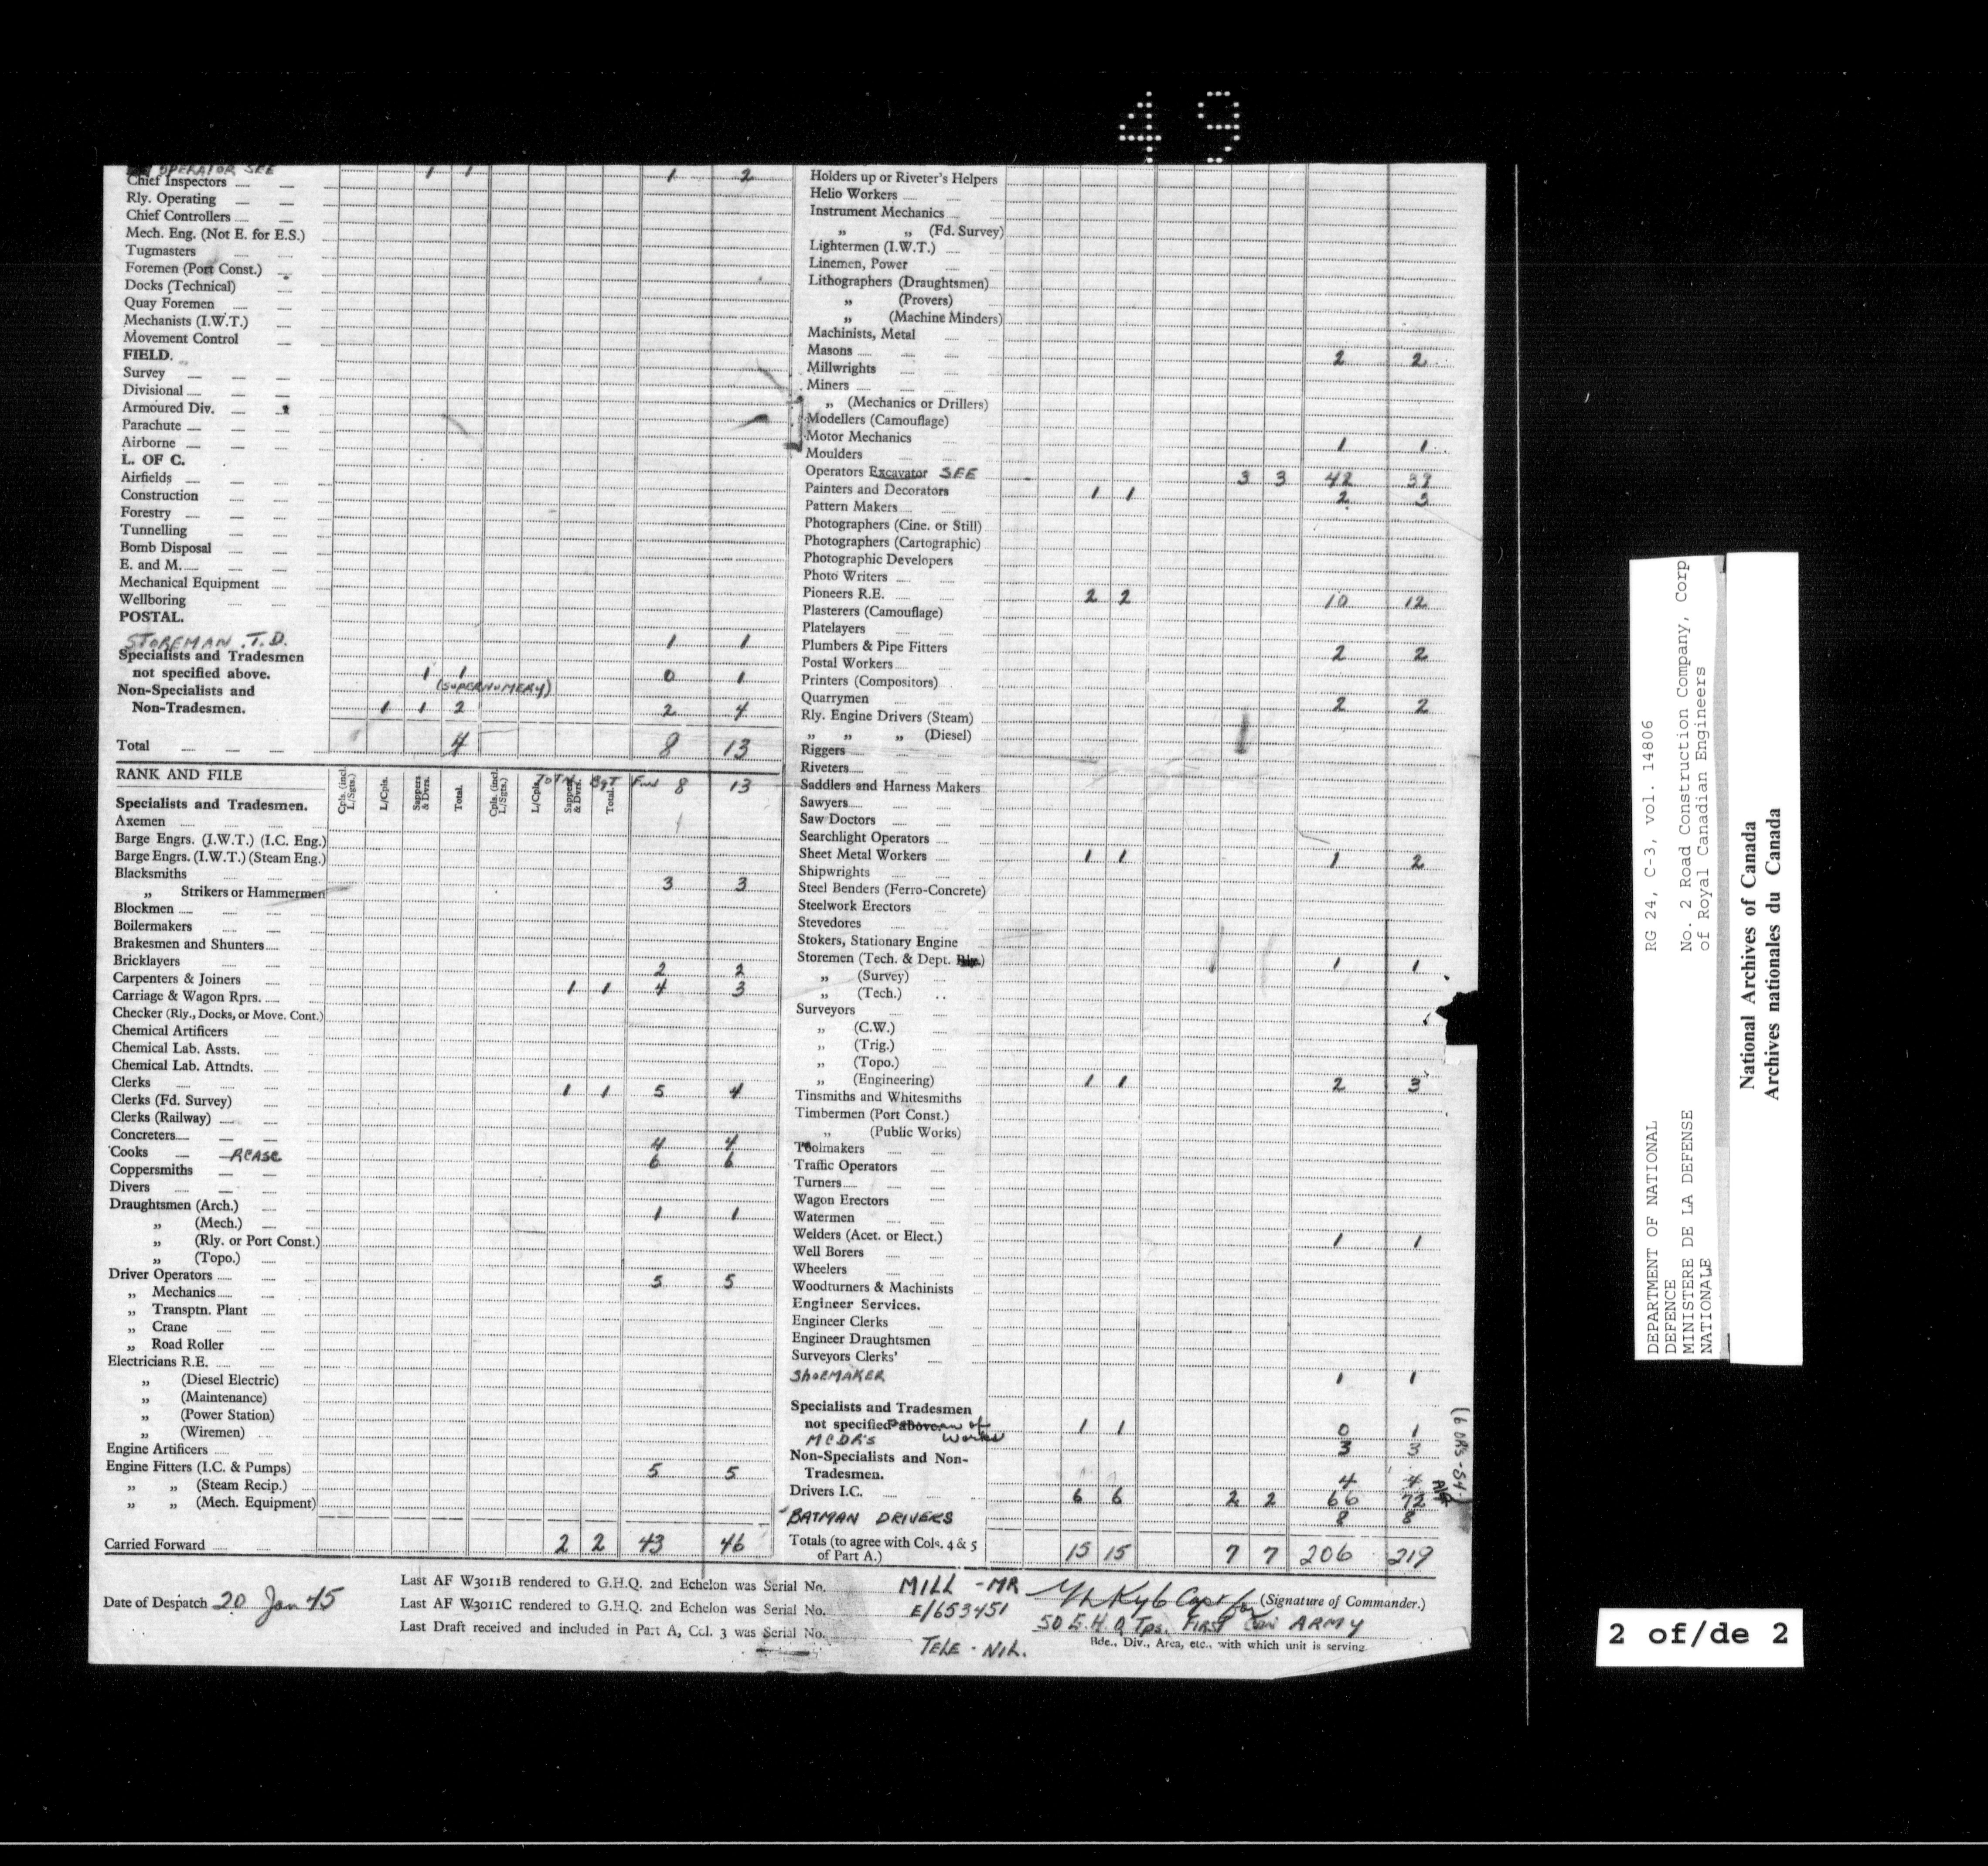 49
OPERATOR SEE 1 1 1 2
Chief Inspectors
Rly. Operating
Chief Controllers
Mech. Eng. (Not E. for E.S.)
Tugmasters
Foremen (Port Const.)
Docks (Technical)
Quay Foremen
Mechanists (I.W.T.)
Movement Control
FIELD.
Survey
Divisional
Armoured Div.
Parachute
Airborne
L. OF C.
Airfields
Construction
Forestry
Tunnelling
Bomb Disposal
E. and M.
Mechanical Equipment
Wellboring
POSTAL.
STOREMAN T.D. 1 1
Specialists and Tradesmen
not specified above. 1 1 0 1
Non-Specialists and (SUPERNUMERY)
Non-Tradesmen. 1 1 2 2 4
Total 4 8 13
RANK AND FILE Cpls. (incl. L/Sgts.) L/Cpls. Sappers & Dvrs. Total. Cpls. (incl. L/Sgts.) L/Cpls. Sappers & Dvrs. Total. TOTAL Bgt Fwd 8 13
Specialists and Tradesmen.
Axemen
Barge Engrs. (I.W.T.) (I.C. Eng.)
Barge Engrs. (I.W.T.) (Steam Eng.)
Blacksmiths 3 3
„ Strikers or Hammermen
Blockmen
Boilermakers
Brakesmen and Shunters
Bricklayers 2 2
Carpenters & Joiners 1 1 4 3
Carriage & Wagon Rprs.
Checker (Rly., Docks, or Move. Cont.)
Chemical Artificers
Chemical Lab. Assts.
Chemical Lab. Attndts.
Clerks 1 1 5 4
Clerks (Fd. Survey)
Clerks (Railway)
Concreters 4 4
Cooks RCASC 6 6
Coppersmiths
Divers
Draughtsmen (Arch.) 1 1
„ (Mech.)
„ (Rly. or Port Const.)
„ (Topo.)
Driver Operators 5 5
„ Mechanics
„ Transptn. Plant
„ Crane
„ Road Roller
Electricians R.E.
„ (Diesel Electric)
„ (Maintenance)
„ (Power Station)
„ (Wiremen)
Engine Artificers
Engine Fitters (I.C. & Pumps) 5 5
„ „ (Steam Recip.)
„ „ (Mech. Equipment)
Carried Forward 2 2 43 46
Holders up or Riveter's Helpers
Helio Workers
Instrument Mechanics
„ „ (Fd. Survey)
Lightermen (I.W.T.)
Linemen, Power
Lithographers (Draughtsmen)
„ (Provers)
„ (Machine Minders)
Machinists, Metal
Masons 2 2
Millwrights
Miners
„ (Mechanics or Drillers)
Modellers (Camouflage)
Motor Mechanics 1 1
Moulders
Operators Excavator SEE 3 3 42 39
Painters and Decorators 1 1 2 3
Pattern Makers
Photographers (Cine. or Still)
Photographers (Cartographic)
Photographic Developers
Photo Writers
Pioneers R.E. 2 2 10 12
Plasterers (Camouflage)
Platelayers
Plumbers & Pipe Fitters 2 2
Postal Workers
Printers (Compositors)
Quarrymen 2 2
Rly. Engine Drivers (Steam)
„ „ „ (Diesel)
Riggers
Riveters
Saddlers and Harness Makers
Sawyers
Saw Doctors
Searchlight Operators
Sheet Metal Workers 1 1 1 2
Shipwrights
Steel Benders (Ferro-Concrete)
Steelwork Erectors
Stevedores
Stokers, Stationary Engine
Storemen (Tech. & Dept. Rly.) 1 1
„ (Survey)
„ (Tech.)
Surveyors
„ (C.W.)
„ (Trig.)
„ (Topo.)
„ (Engineering) 1 1 2 3
Tinsmiths and Whitesmiths
Timbermen (Port Const.)
„ (Public Works)
Toolmakers
Traffic Operators
Turners
Wagon Erectors
Watermen
Welders (Acet. or Elect.) 1 1
Well Borers
Wheelers
Woodturners & Machinists
Engineer Services.
Engineer Clerks
Engineer Draughtsmen
Surveyors Clerks'
SHOEMAKER 1 1
Specialists and Tradesmen
not specified above of 1 1 0 1
MCDR'S Works 3 3
Non-Specialists and Non-
Tradesmen. 4 4
Drivers I.C. 6 6 2 2 66 72
BATMAN DRIVERS 8 8
Totals (to agree with Cols. 4 & 5
of Part A.) 15 15 7 7 206 219
Date of Despatch 20 Jan 45
Last AF W3011B rendered to G.H.Q. 2nd Echelon was Serial No. MILL - MR
Last AF W3011C rendered to G.H.Q. 2nd Echelon was Serial No. E/653451
Last Draft received and included in Part A, Col. 3 was Serial No. TELE - NIL.
Capt for (Signature of Commander.)
FIRST Cdn ARMY
Bde., Div., Area, etc., with which unit is serving.
DEPARTMENT OF NATIONAL DEFENCE
MINISTERE DE LA DEFENSE NATIONALE
RG 24, C-3, vol. 14806
No. 2 Road Construction Company, Corp
of Royal Canadian Engineers
National Archives of Canada
Archives nationales du Canada
2 of/de 2